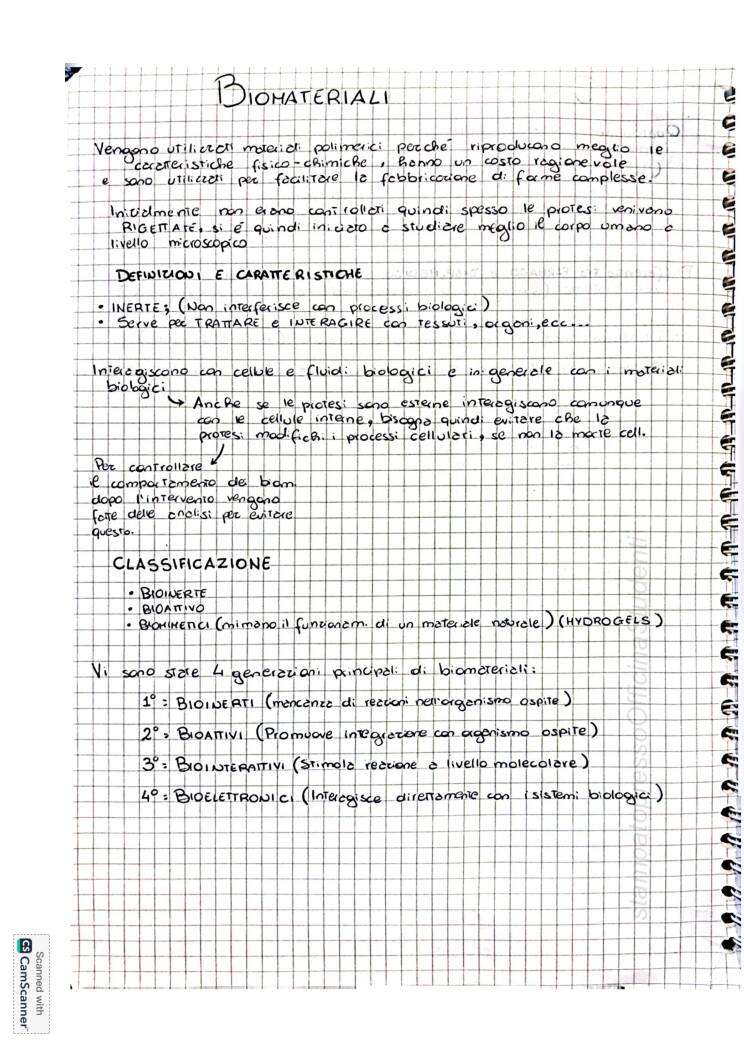 BIOMATERIALI
Vengono utilizzati materiali polimerici perché riproducano meglio le
caratteristiche fisico-chimiche, hanno un costo ragionevole
e sono utilizzati per facilitare la fabbricazione di forme complesse.
Inizialmente non erano controllati quindi spesso le protesi venivono
RIGETTATE, si é quindi iniziato a studiare meglio il corpo umano a
livello microscopico
DEFINIZIONI E CARATTERISTICHE
• INERTE; (Non interferisce con processi biologici)
• Serve per TRATTARE e INTERAGIRE con TESSUTI, organi, ecc...
Interagiscono con cellule e fluidi biologici e in generale con i materiali
biologici
↳ Anche se le protesi sono esterne interagiscano comunque
con le cellule interne, bisogna quindi evitare che la
protesi modifichi i processi cellulari, se non la morte cell.
Per controllare
il comportamento dei biom.
dopo l'intervento vengono
fatte delle analisi per evitare
questo.
CLASSIFICAZIONE
• BIOINERTE
• BIOATTIVO
• BIOMIMETICI (mimano il funzionam. di un materiale naturale) (HYDROGELS)
Vi sono state 4 generazioni principali di biomateriali:
1° = BIOINERTI (mancanza di reazioni nell'organismo ospite)
2° = BIOATTIVI (Promuove integrazione con organismo ospite)
3° = BIOINTERATTIVI (Stimola reazione a livello molecolare)
4° = BIOELETTRONICI (Interagisce direttamente con i sistemi biologici)
stampato presso Officina Studenti
Scanned with
CS CamScanner